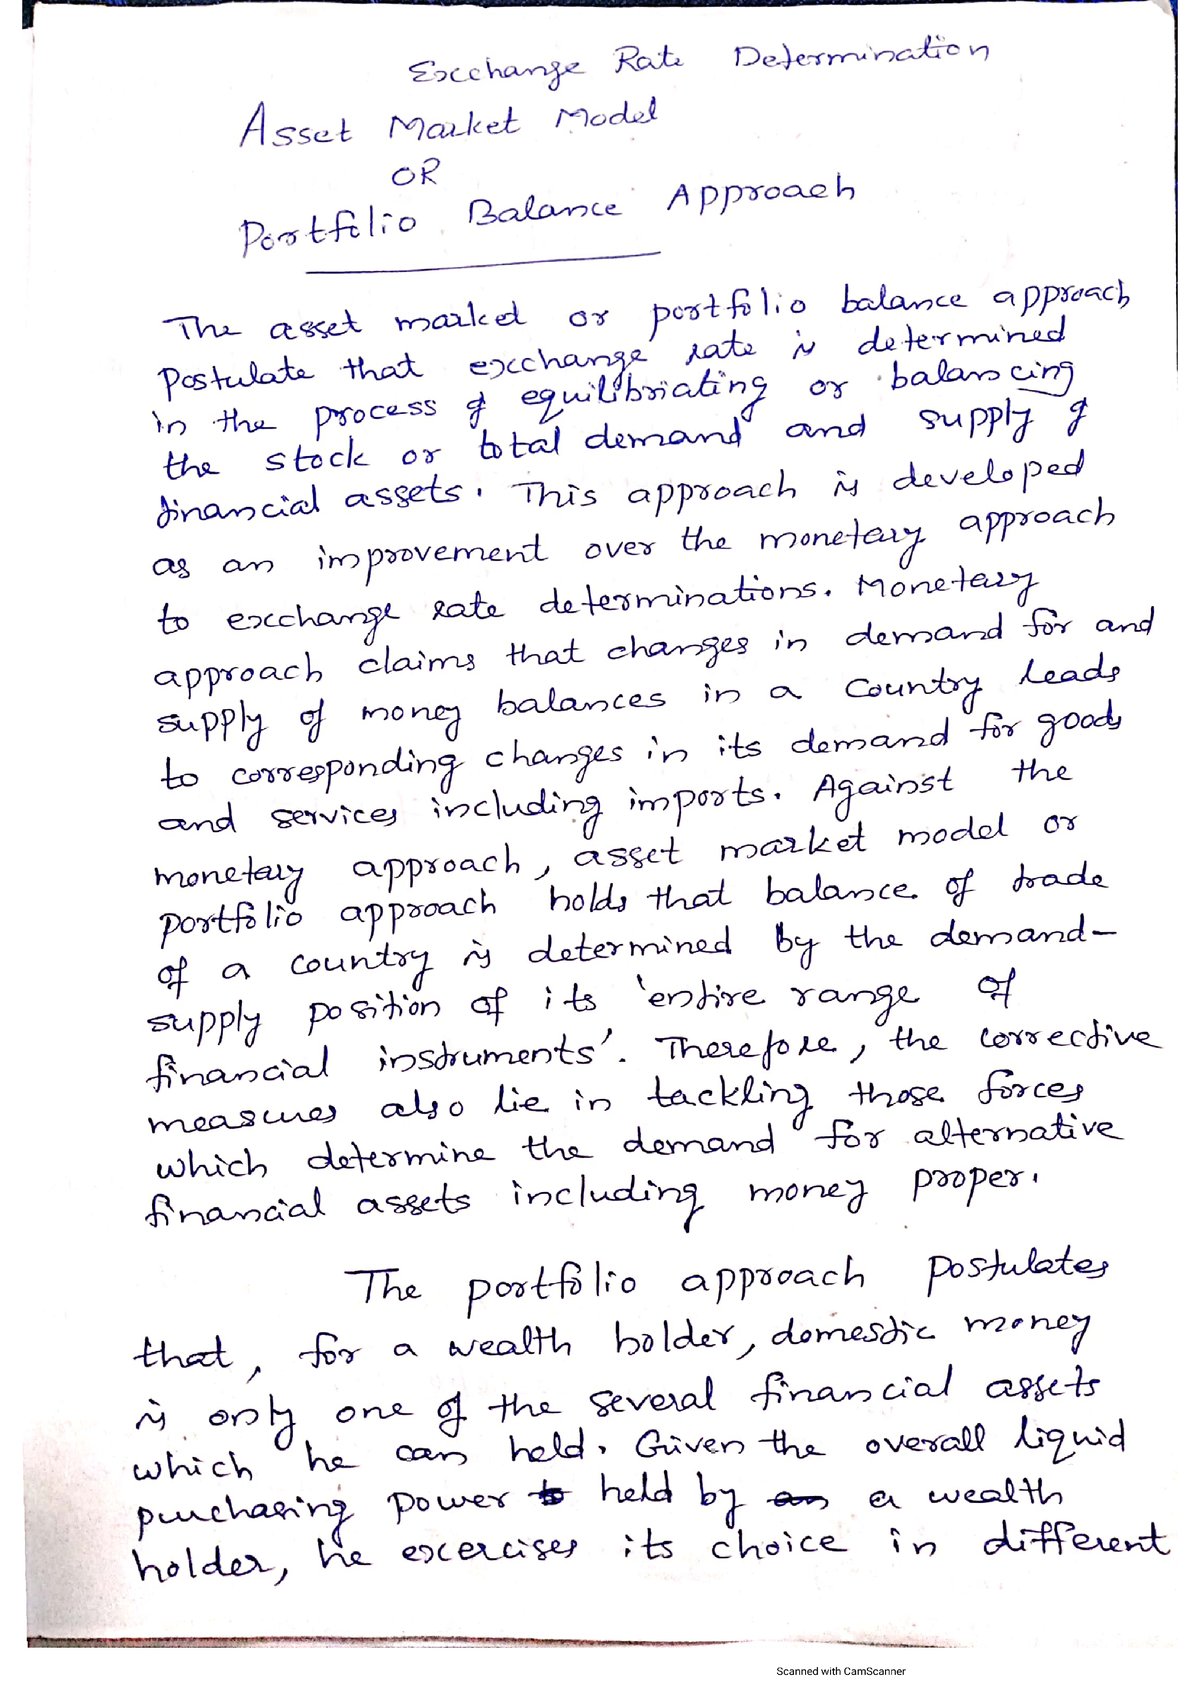 Exchange Rate Determination
Asset Market Model
OR
Portfolio Balance Approach
The asset market or portfolio balance approach
Postulate that exchange rate is determined
in the process of equilibriating or balancing
the stock or total demand and supply of
financial assets. This approach is developed
as an improvement over the monetary approach
to exchange rate determinations. Monetary
approach claims that changes in demand for and
supply of money balances in a country leads
to corresponding changes in its demand for goods
and services including imports. Against the
monetary approach, asset market model or
portfolio approach holds that balance of trade
of a country is determined by the demand-
supply position of its 'entire range of
financial instruments'. Therefore, the corrective
measures also lie in tackling those forces
which determine the demand for alternative
financial assets including money proper.
The portfolio approach postulates
that, for a wealth holder, domestic money
is only one of the several financial assets
which he can held. Given the overall liquid
purchasing power to held by an a wealth
holder, he excercises its choice in different
Scanned with CamScanner